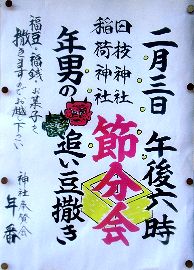 二月三日 午後六時
日枝神社
稲荷神社
節分会
年男の追い豆撒き
福豆・福銭・お菓子を
撒きますのでお越し下さい
神社奉賛会
年番